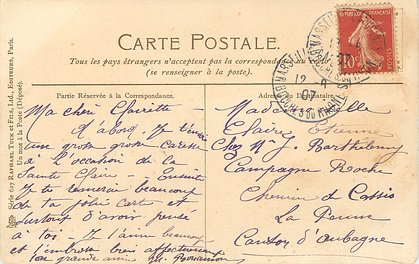 CARTE POSTALE.
Tous les pays étrangers n'acceptent pas la correspondance au
(se renseigner à la poste).
Partie Réservée à la Correspondance.
Adresse du Destinataire
Ma chère Clairette -
D'abord, Je t'envoie
une grosse grosse caresse
à l'occasion de la
Sainte Claire - Ensuite
Je te remercie beaucoup
de ta jolie carte et
surtout d'avoir pensé
à toi - Je t'aime beaucoup
et t'embrasse bien affectueusement
ta grande amie
Mademoiselle
Claire Etienne
Chez Mr J. Barthélemy
Campagne Roche
Chemin de Cassis
La Penne
Canton d'Aubagne
Série 607 RAPHAEL TUCK ET FILS, LTD., EDITEURS, PARIS.
Un mot à la Poste (Déposé).
REPUBLIQUE FRANÇAISE
10c
MARSEILLE
12
07
BOUCHES DU RHONE